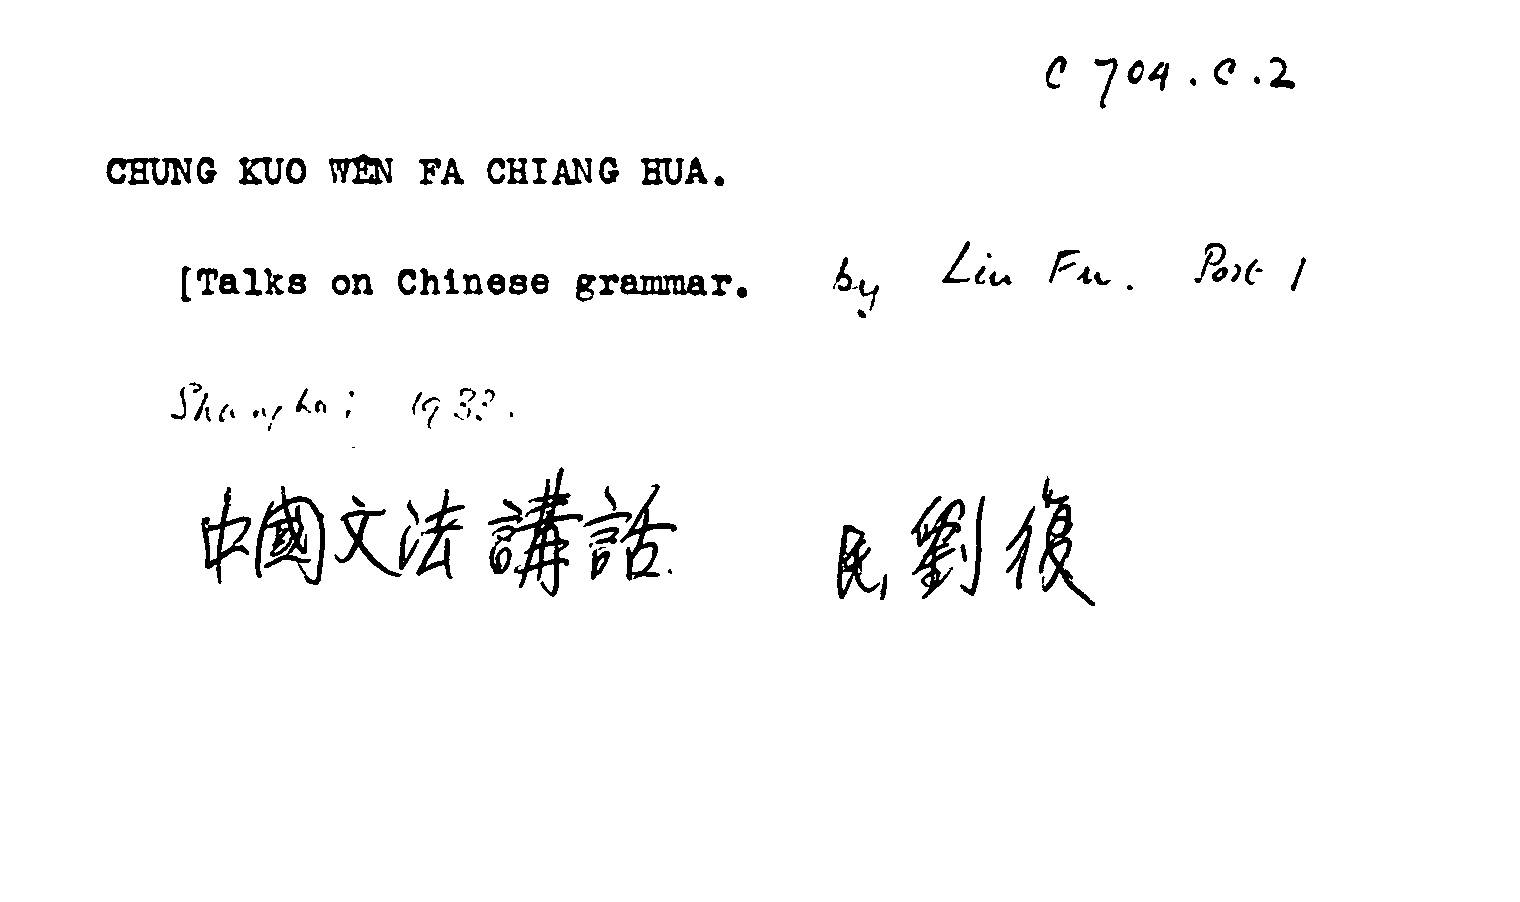 C 704.C.2
CHUNG KUO WÊN FA CHIANG HUA.
[Talks on Chinese grammar. by Liu Fu. Part 1
Shanghai 1933.
中國文法講話 民, 劉復